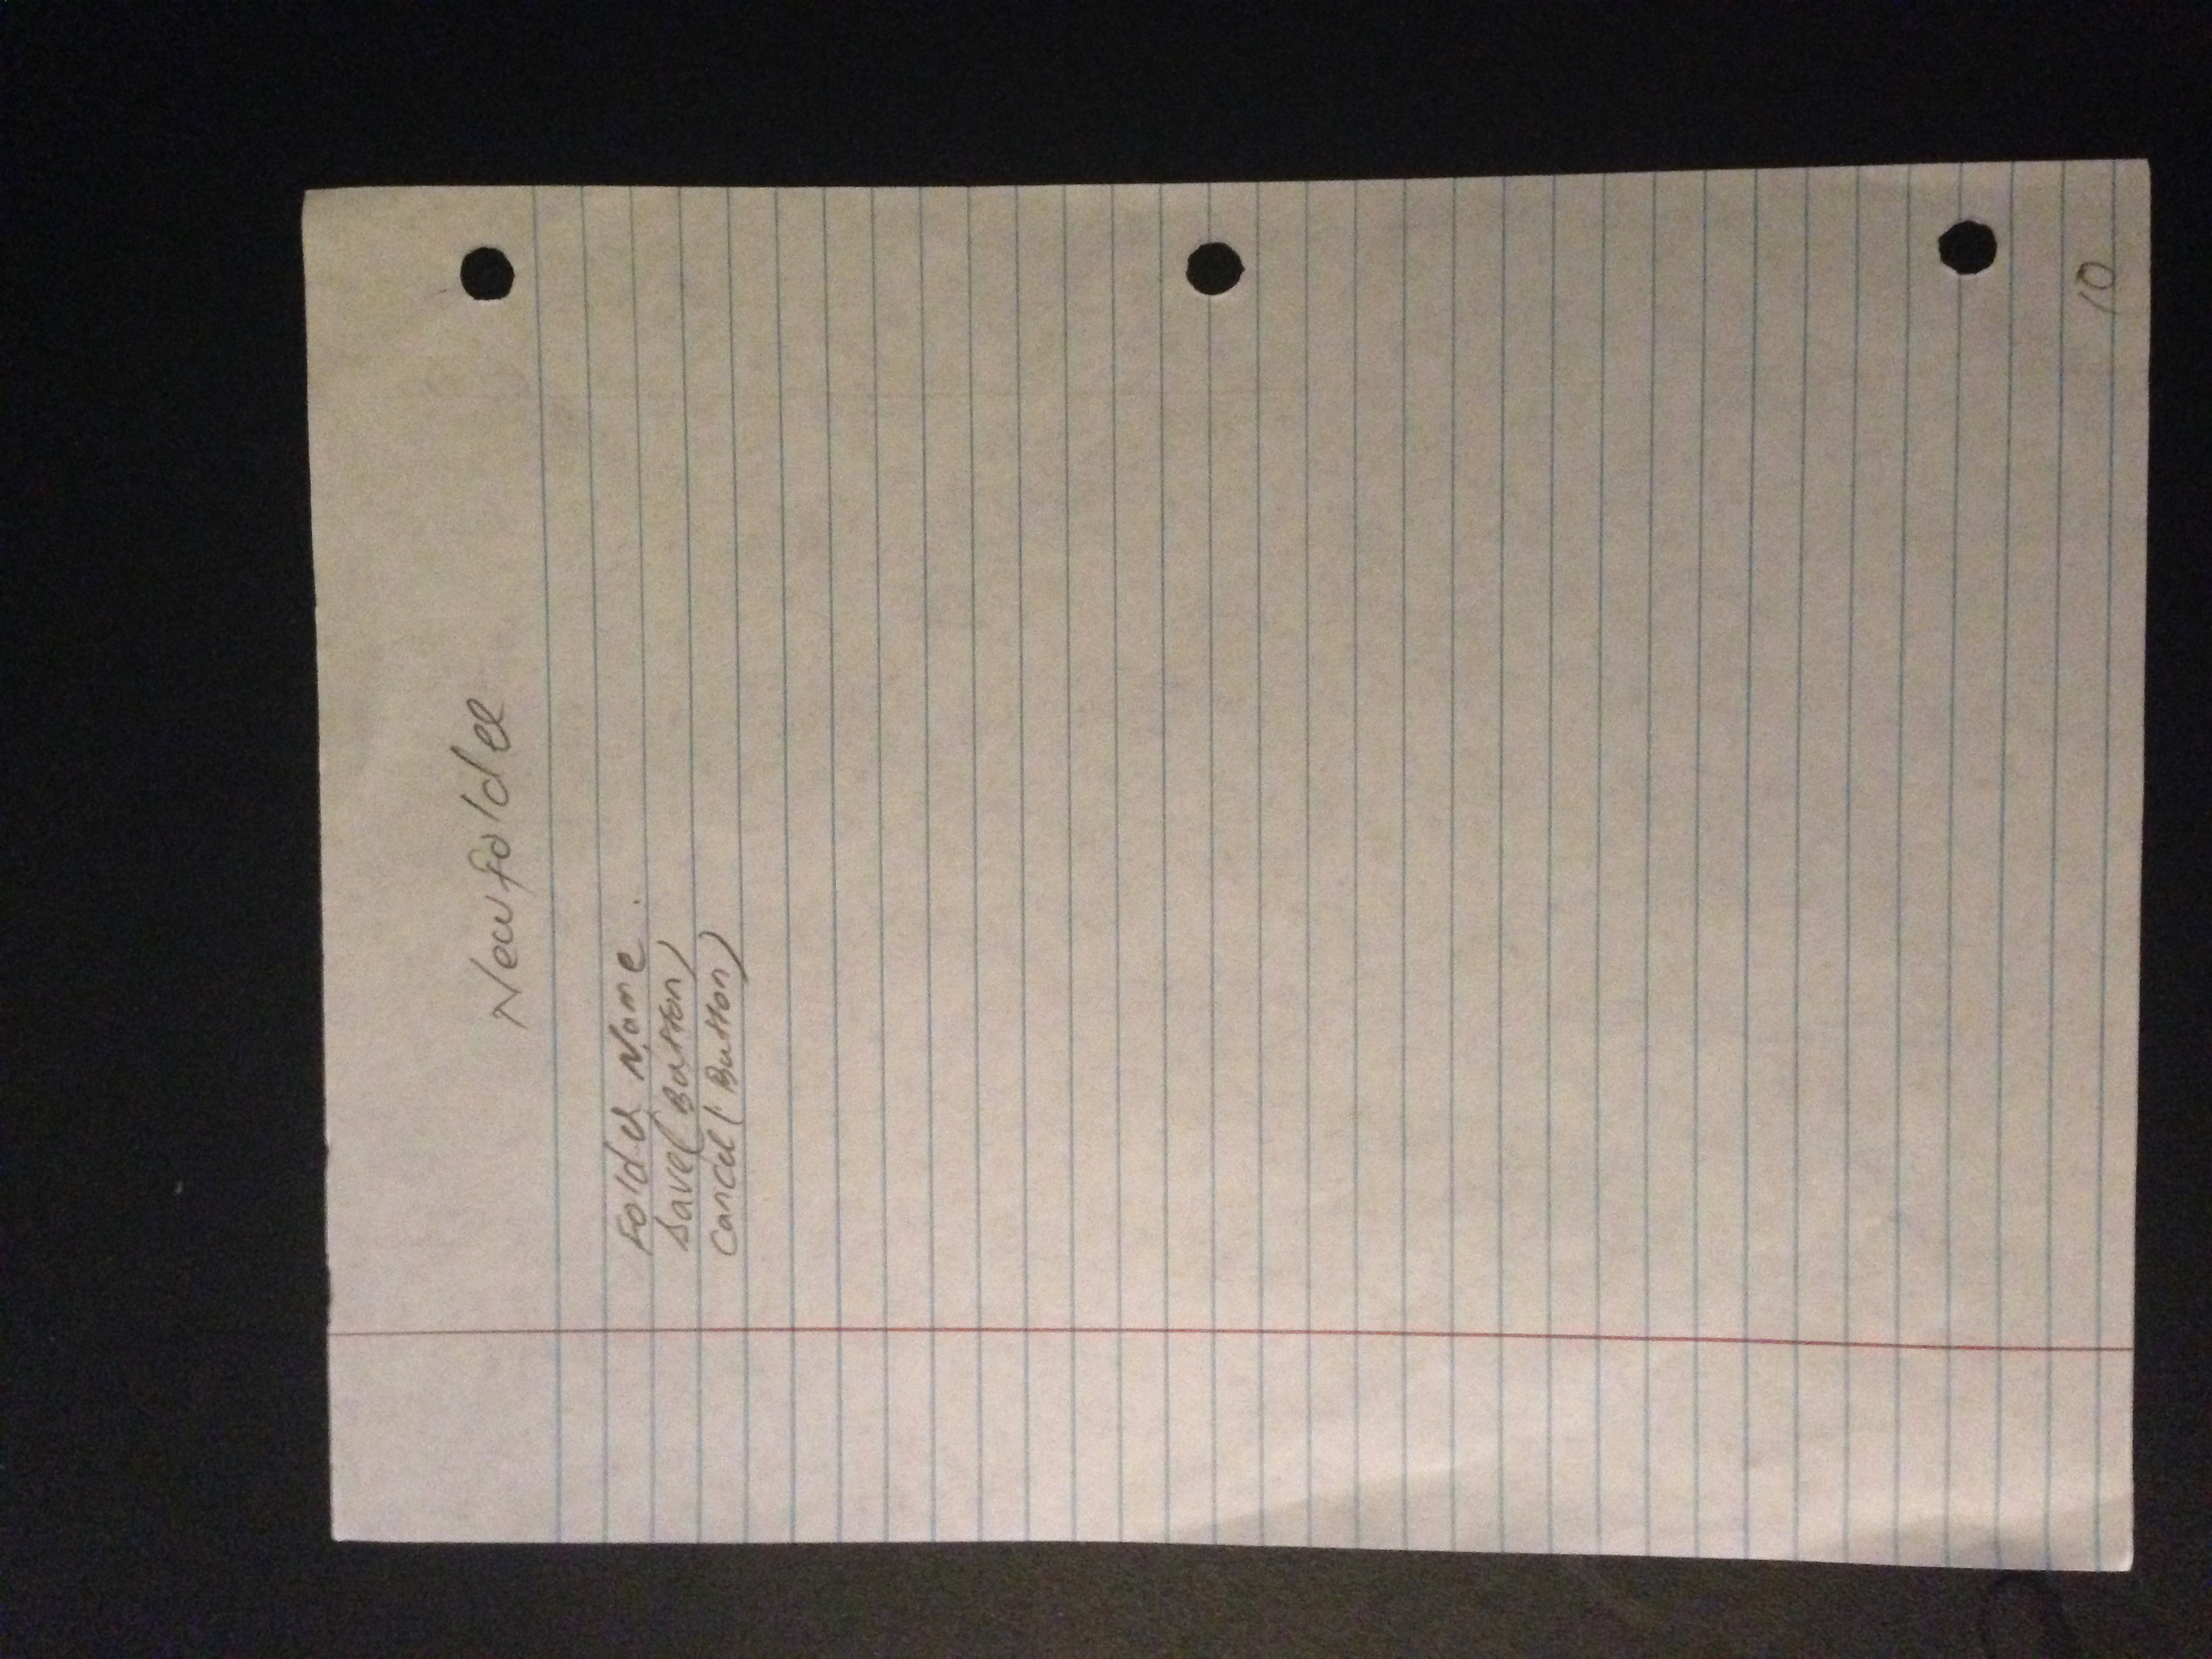 New folder
Folder Name .
Save (Button)
Cancel (Button)
10